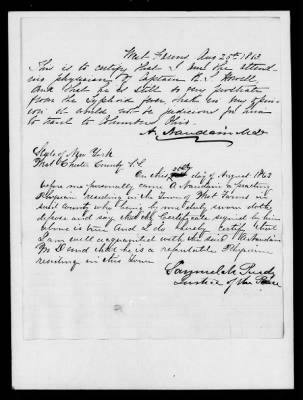 West Farms Aug 25th 1863
This is to certify that I am the attend-
ing physician of Captain B. F.
and that he is still so very prostrate
from the Typhoid fever, that in my opin-
ion it would not be judicious for him
to travel to Columbus Ohio.
A. Naudain M.D.
State of New York
West Chester County S.S.
On this 25th day of August 1863
before me personally came A Naudain a practicing
Physician residing in the Town of West Farms in
said County who being by me duly sworn doth
depose and say that the Certificate signed by him
above is true and I do hereby certify that
I am well acquainted with the said A Naudain
M D and that he is a reputable Physician
residing in this Town
Samuel M Purdy
Justice of the Peace